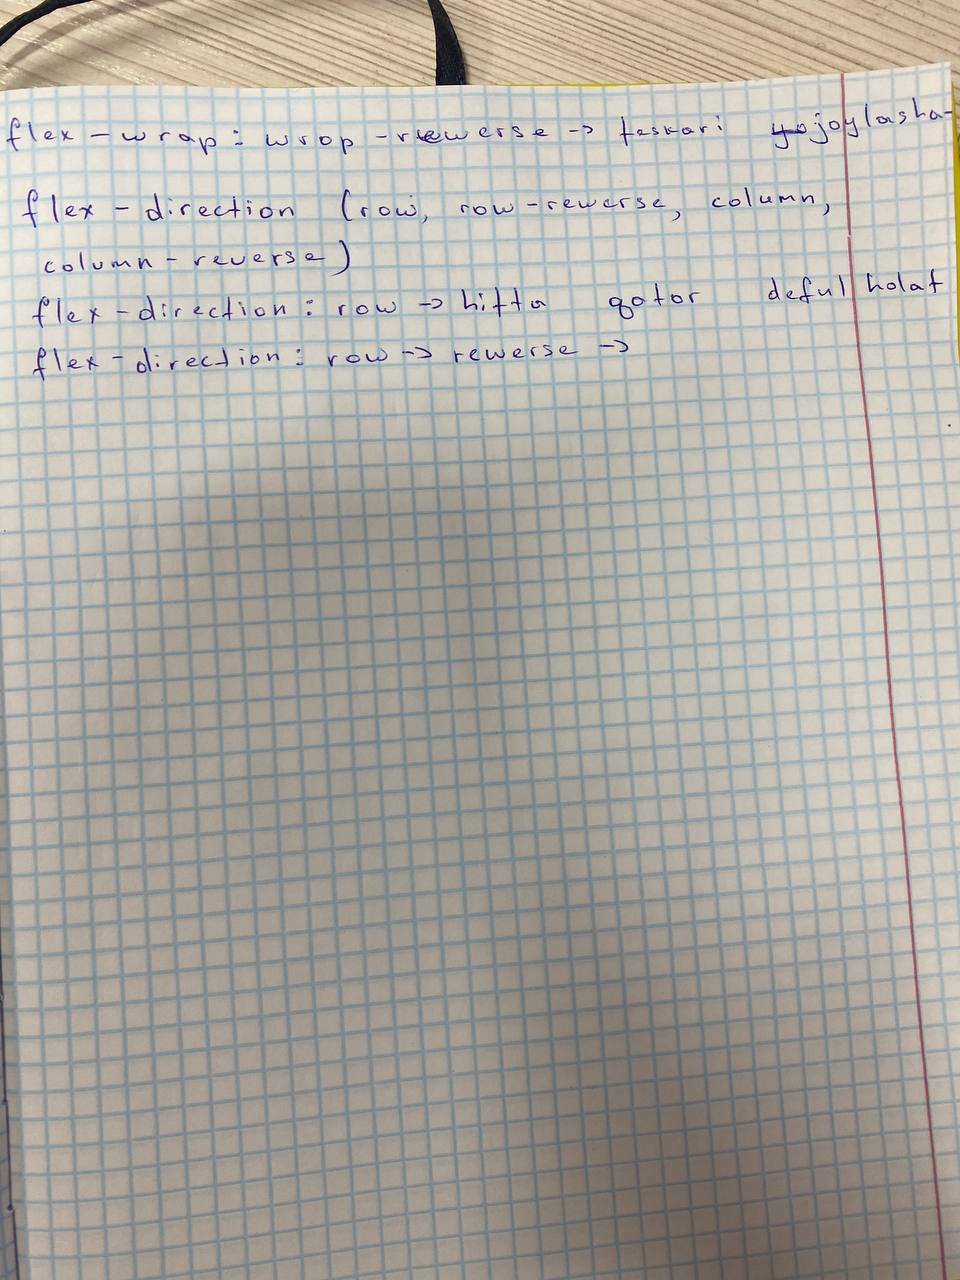 flex-wrap: wrop-rewerse -> teskari joylasha-
flex-direction (row, row-rewerse, column,
column-reverse)
flex-direction: row -> bitta qator deful holat
flex-direction: row -> rewerse ->